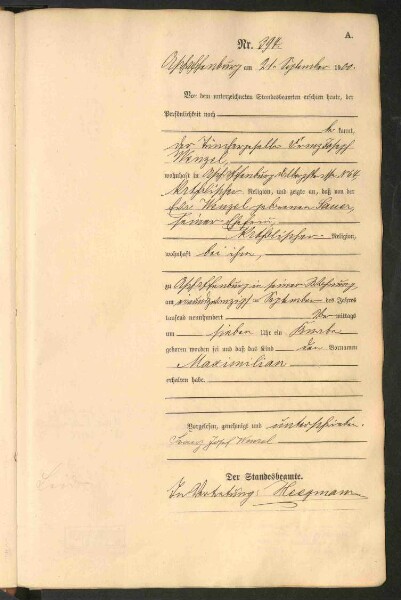 A.
Nr. 394.
Aschaffenburg am 21. September 1900.
Vor dem unterzeichneten Standesbeamten erschien heute, der
Persönlichkeit nach
kannt,
der Tünchergeselle Franz Josef
Wenzel,
wohnhaft in Aschaffenburg
katholischer Religion, und zeigte an, daß von der
Wenzel geborenen Sauer,
seiner Ehefrau,
katholischer Religion,
wohnhaft bei ihm,
zu Aschaffenburg in seiner Wohnung
am einundzwanzigsten September des Jahres
tausend neunhundert Vormittags
um sieben Uhr ein Knabe
geboren worden sei und daß das Kind den Vornamen
Maximilian
erhalten habe.
Vorgelesen, genehmigt und unterschrieben
Franz Josef Wenzel
Der Standesbeamte.
In Vertretung: